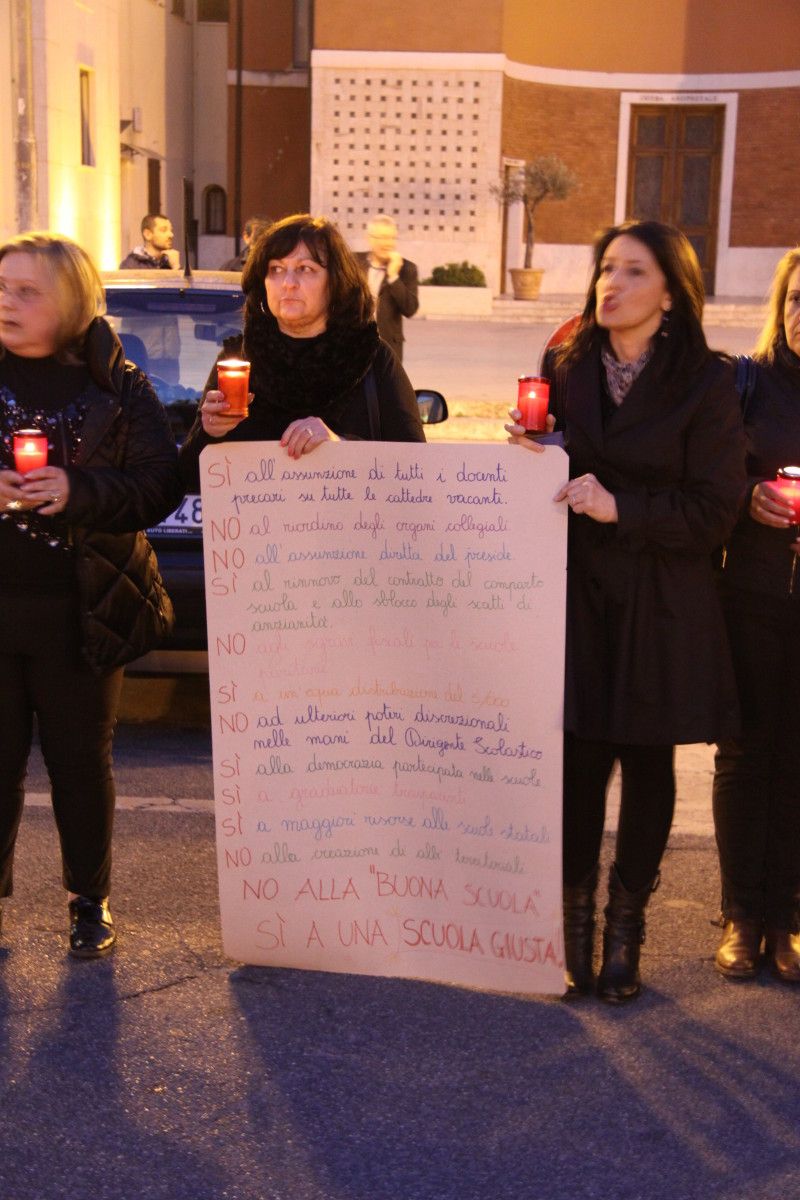 SÌ all'assunzione di tutti i docenti
precari su tutte le cattedre vacanti.
NO al riordino degli organi collegiali
NO all'assunzione diretta del preside.
SÌ al rinnovo del contratto del comparto
scuola e allo sblocco degli scatti di
anzianità.
NO agli sgravi fiscali per le scuole
paritarie
SÌ a un'equa distribuzione del 5‰
NO ad ulteriori poteri discrezionali
nelle mani del Dirigente Scolastico
SÌ alla democrazia partecipata nelle scuole
SÌ a graduatorie trasparenti
SÌ a maggiori risorse alle scuole statali
NO alla creazione di albi territoriali
NO ALLA "BUONA SCUOLA"
SÌ A UNA SCUOLA GIUSTA.
48